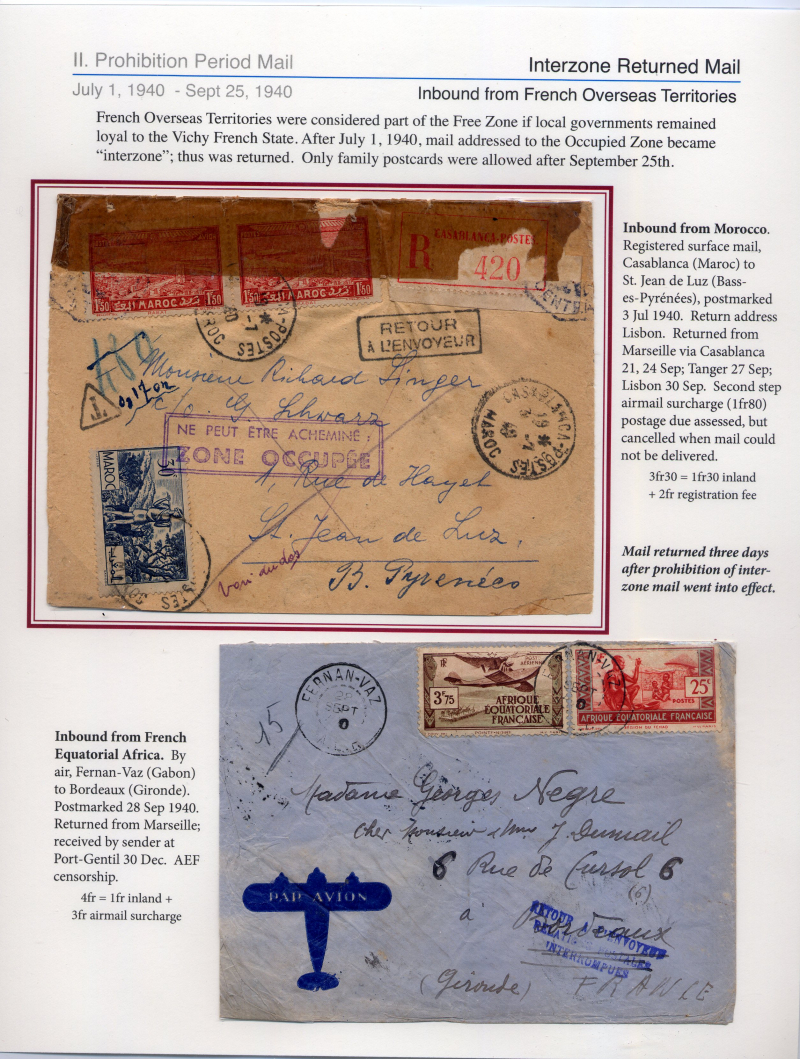 II. Prohibition Period Mail
Interzone Returned Mail
July 1, 1940 - Sept 25, 1940
Inbound from French Overseas Territories
French Overseas Territories were considered part of the Free Zone if local governments remained
loyal to the Vichy French State. After July 1, 1940, mail addressed to the Occupied Zone became
“interzone”; thus was returned. Only family postcards were allowed after September 25th.
CASABLANCA-POSTES
R
420
1F50 MAROC 1F50
1F50 MAROC 1F50
CASABLANCA-POSTES
MAROC
RETOUR
À L'ENVOYEUR
480
T
Monsieur Richard Singer
c/o. G. Schwarz
NE PEUT ÊTRE ACHEMINÉ :
ZONE OCCUPÉE
1, Rue de Hayet
St. Jean de Luz,
B. Pyrenées
voir au dos
CASABLANCA-POSTES
19
3 -7
40
MAROC
MAROC
30c
Inbound from Morocco.
Registered surface mail,
Casablanca (Maroc) to
St. Jean de Luz (Bass-
es-Pyrénées), postmarked
3 Jul 1940. Return address
Lisbon. Returned from
Marseille via Casablanca
21, 24 Sep; Tanger 27 Sep;
Lisbon 30 Sep. Second step
airmail surcharge (1fr80)
postage due assessed, but
cancelled when mail could
not be delivered.
3fr30 = 1fr30 inland
+ 2fr registration fee
Mail returned three days
after prohibition of inter-
zone mail went into effect.
Inbound from French
Equatorial Africa. By
air, Fernan-Vaz (Gabon)
to Bordeaux (Gironde).
Postmarked 28 Sep 1940.
Returned from Marseille;
received by sender at
Port-Gentil 30 Dec. AEF
censorship.
4fr = 1fr inland +
3fr airmail surcharge
FERNAN-VAZ
28
SEPT
0
15
RF
POSTE AÉRIENNE
3F75
AFRIQUE
ÉQUATORIALE
FRANÇAISE
POINTE-NOIRE
FERNAN-VAZ
SEPT
0
25c
POSTES
AFRIQUE EQUATORIALE FRANÇAISE
Madame Georges Negre
cher Monsieur & Mme J. Dumail
6 Rue de Cursol 6
(6)
à Bordeaux
RETOUR A L'ENVOYEUR
RELATIONS POSTALES
INTERROMPUES
(Gironde) FRANCE
PAR AVION